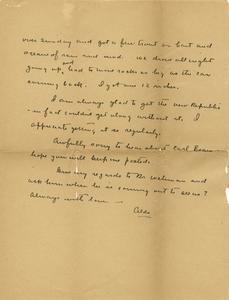 over Sunday and got a few trout on bait and
oceans of rain and mud. We drove all night
going up, and had to move rocks as big as the car
coming back. I got one 12 inches.
I am always glad to get the New Republic
– in fact couldn't get along without it. I
appreciate getting it so regularly.
Awfully sorry to hear about Carl
hope you will keep me posted.
Give my regards to Mr and
ask him when he is coming out to see us?
Always with love –